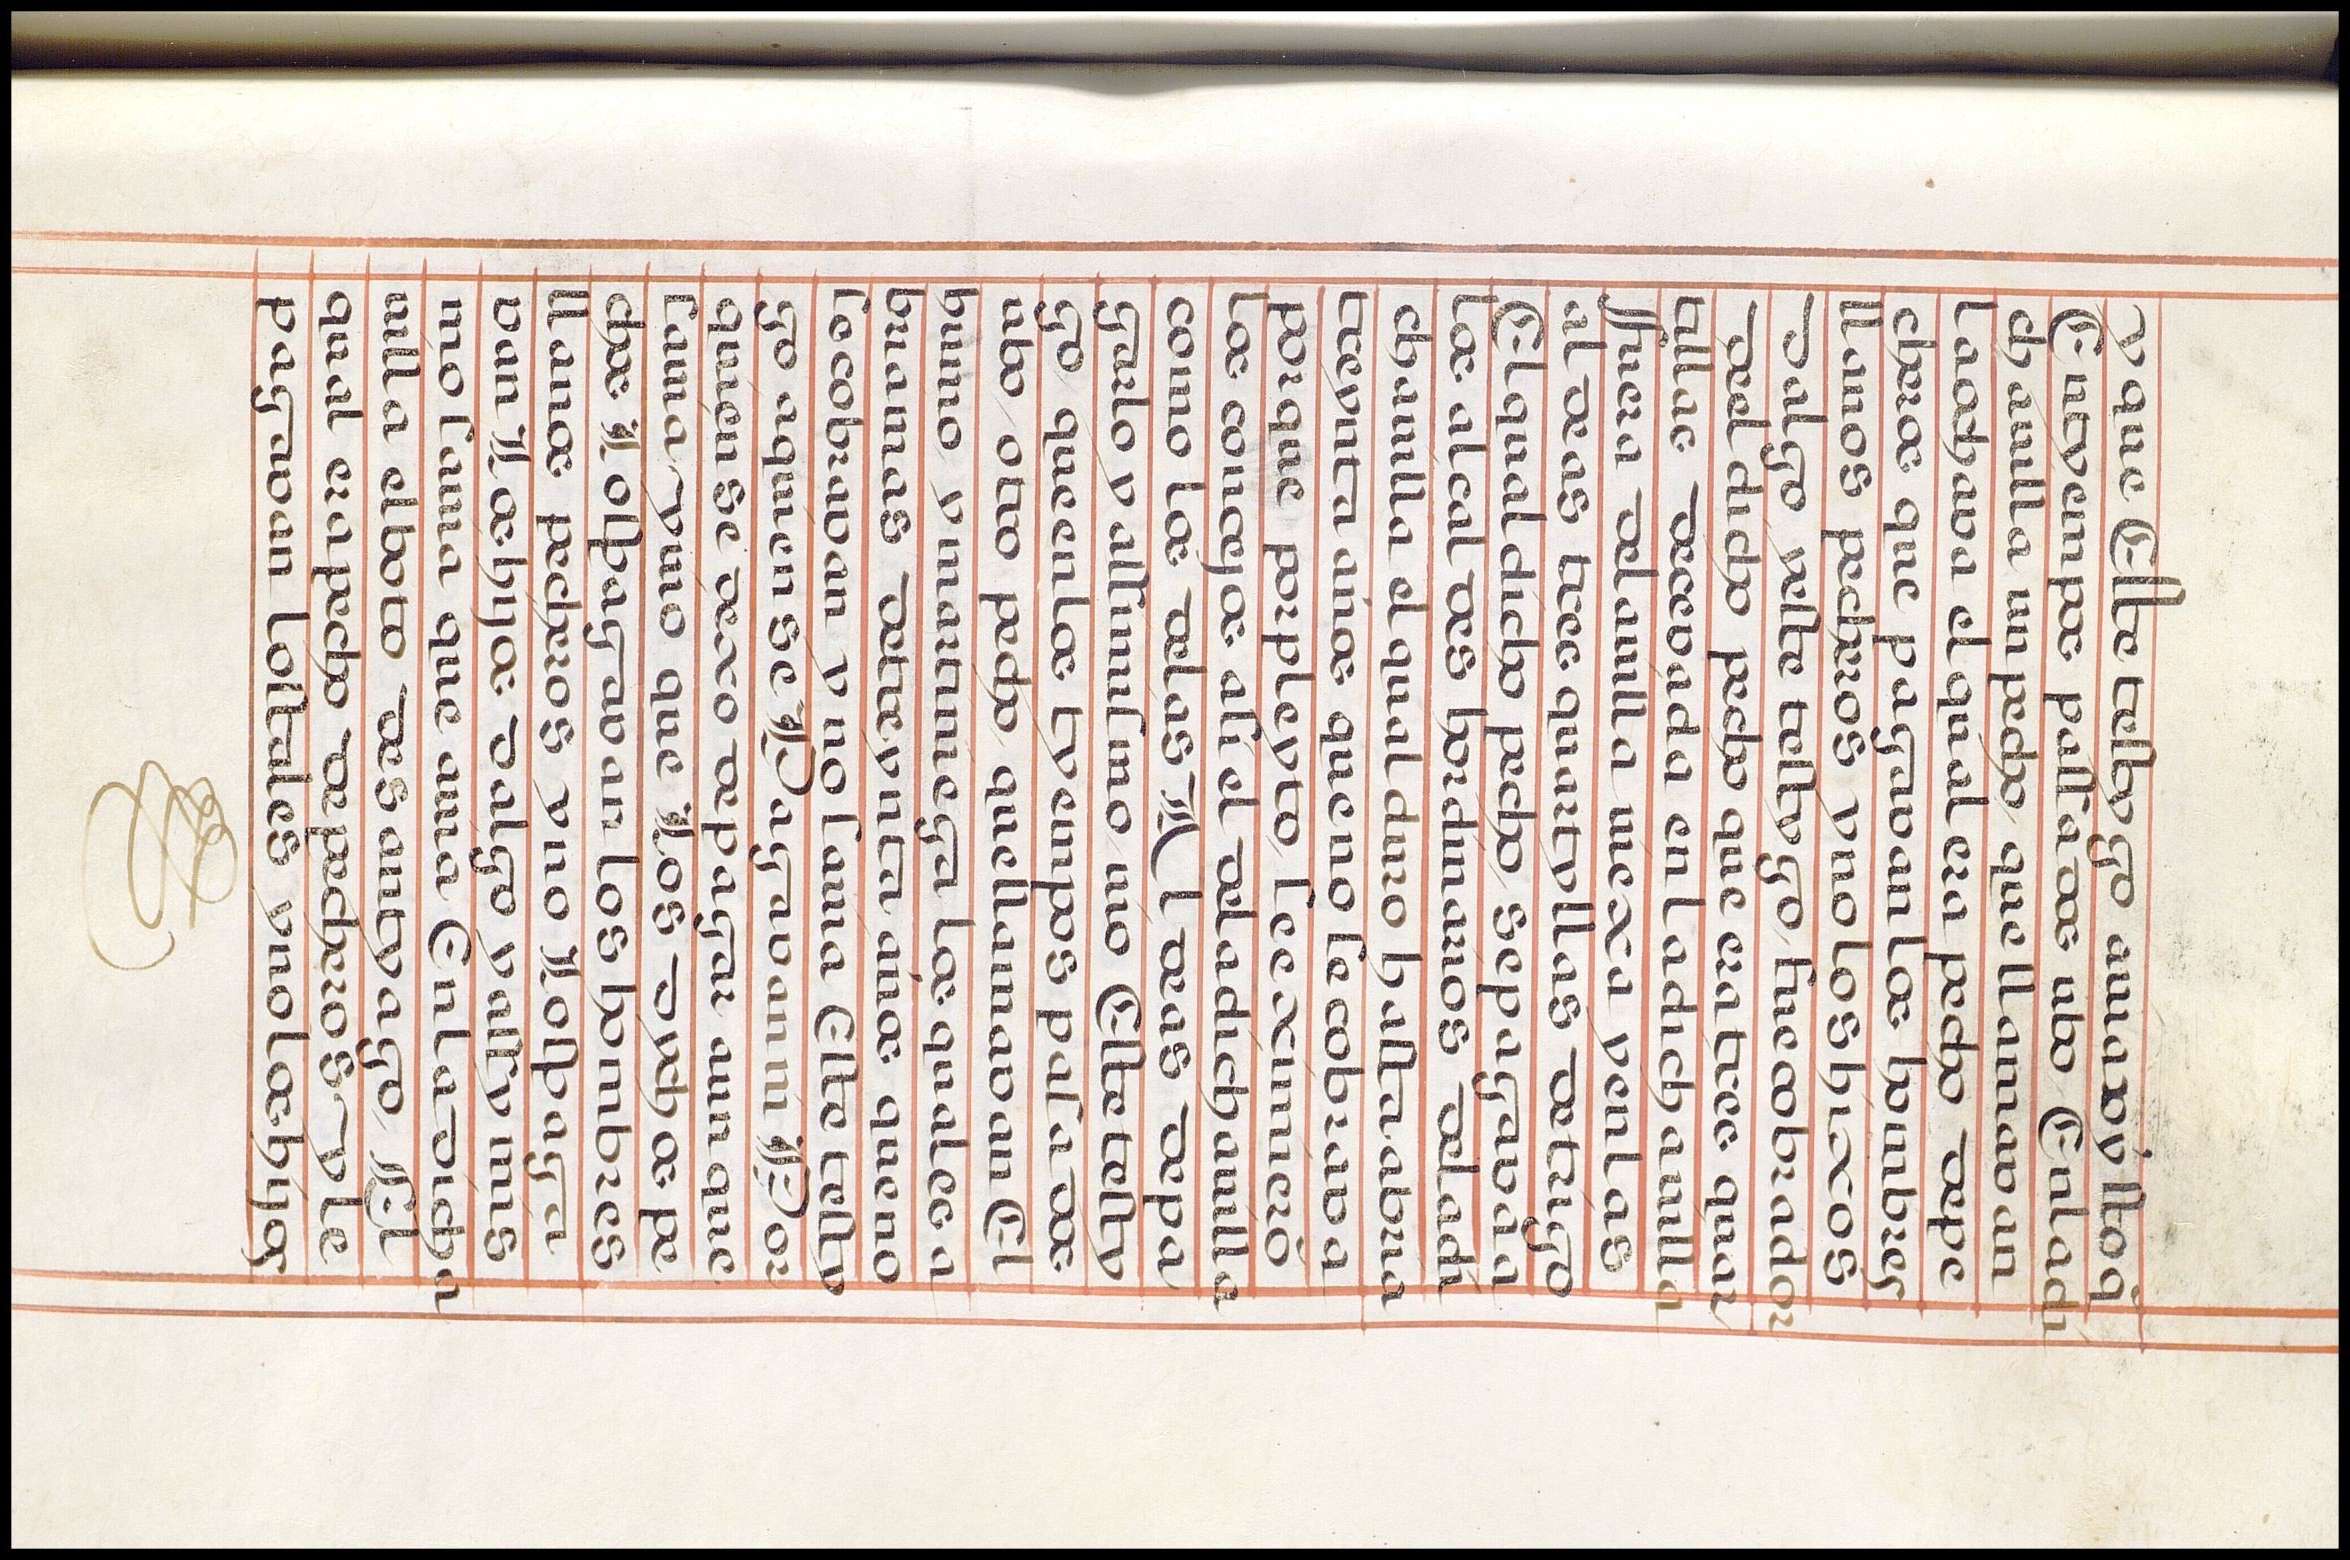 y que Este testygo auia vystoq̃
En tyenpo passado ubo En la di
cha uilla un pecho que llamauan
la ochaua el qual era pecho de pe
cheros que pagauan los honbres
llanos pecheros y no los hixos
dalgo y este testygo fue cobrador
del dicho pecho que era tres quar
tillas de ceuada en la dicha uilla
y en las
aldeas tres quartyllas de trigo
El qual dicho pecho se pagaua a
los alcaldes hordinarios de la di
cha uilla el qual duro hasta abria
treynta años que no se cobraua
porque por pleyto se eximierõ
los conceyos asi el de la dicha uilla
como los de las Aldeas de pa
garlo y assimismo Este testy
go que en los tyenpos pasados
ubo otro pecho que llamauan El
humo y martiniega los quales a
bria mas de treynta años que no
se cobrauan y no sauia Este testy
go a quien se Pagauan ni Por
quien se dexo de pagar aunque
sauia y vio que Los dychos pe
chos Los pagauan los honbres
llanos pecheros y no Los paga
van Los hijos dalgo y assy mis
mo sauia que auia En la dicha
uilla el boto de santyago El
qual era pecho de pecheros y le
pagauan los tales y no los hijos